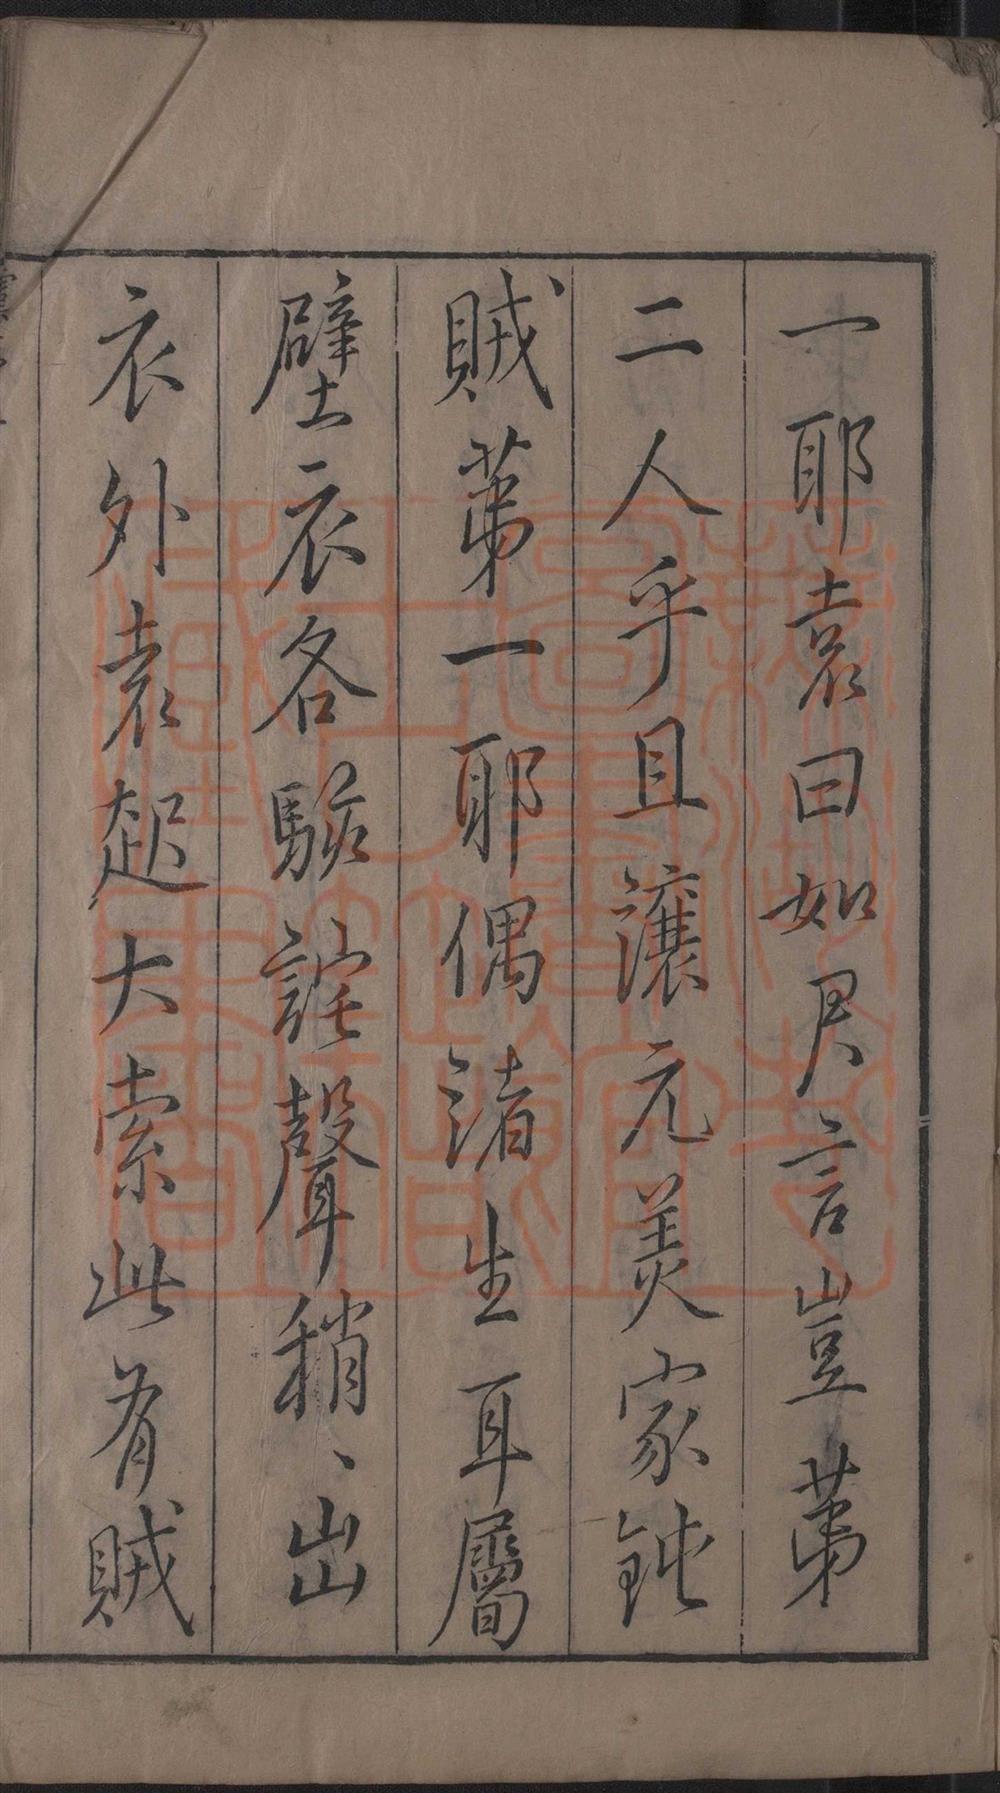 一耶袁曰如君言豈第
二人乎且讓元美家鈍
賊第一耶偶渚生耳屬
壁衣各駭詫聲稍、出
衣外袁起大索此有賊